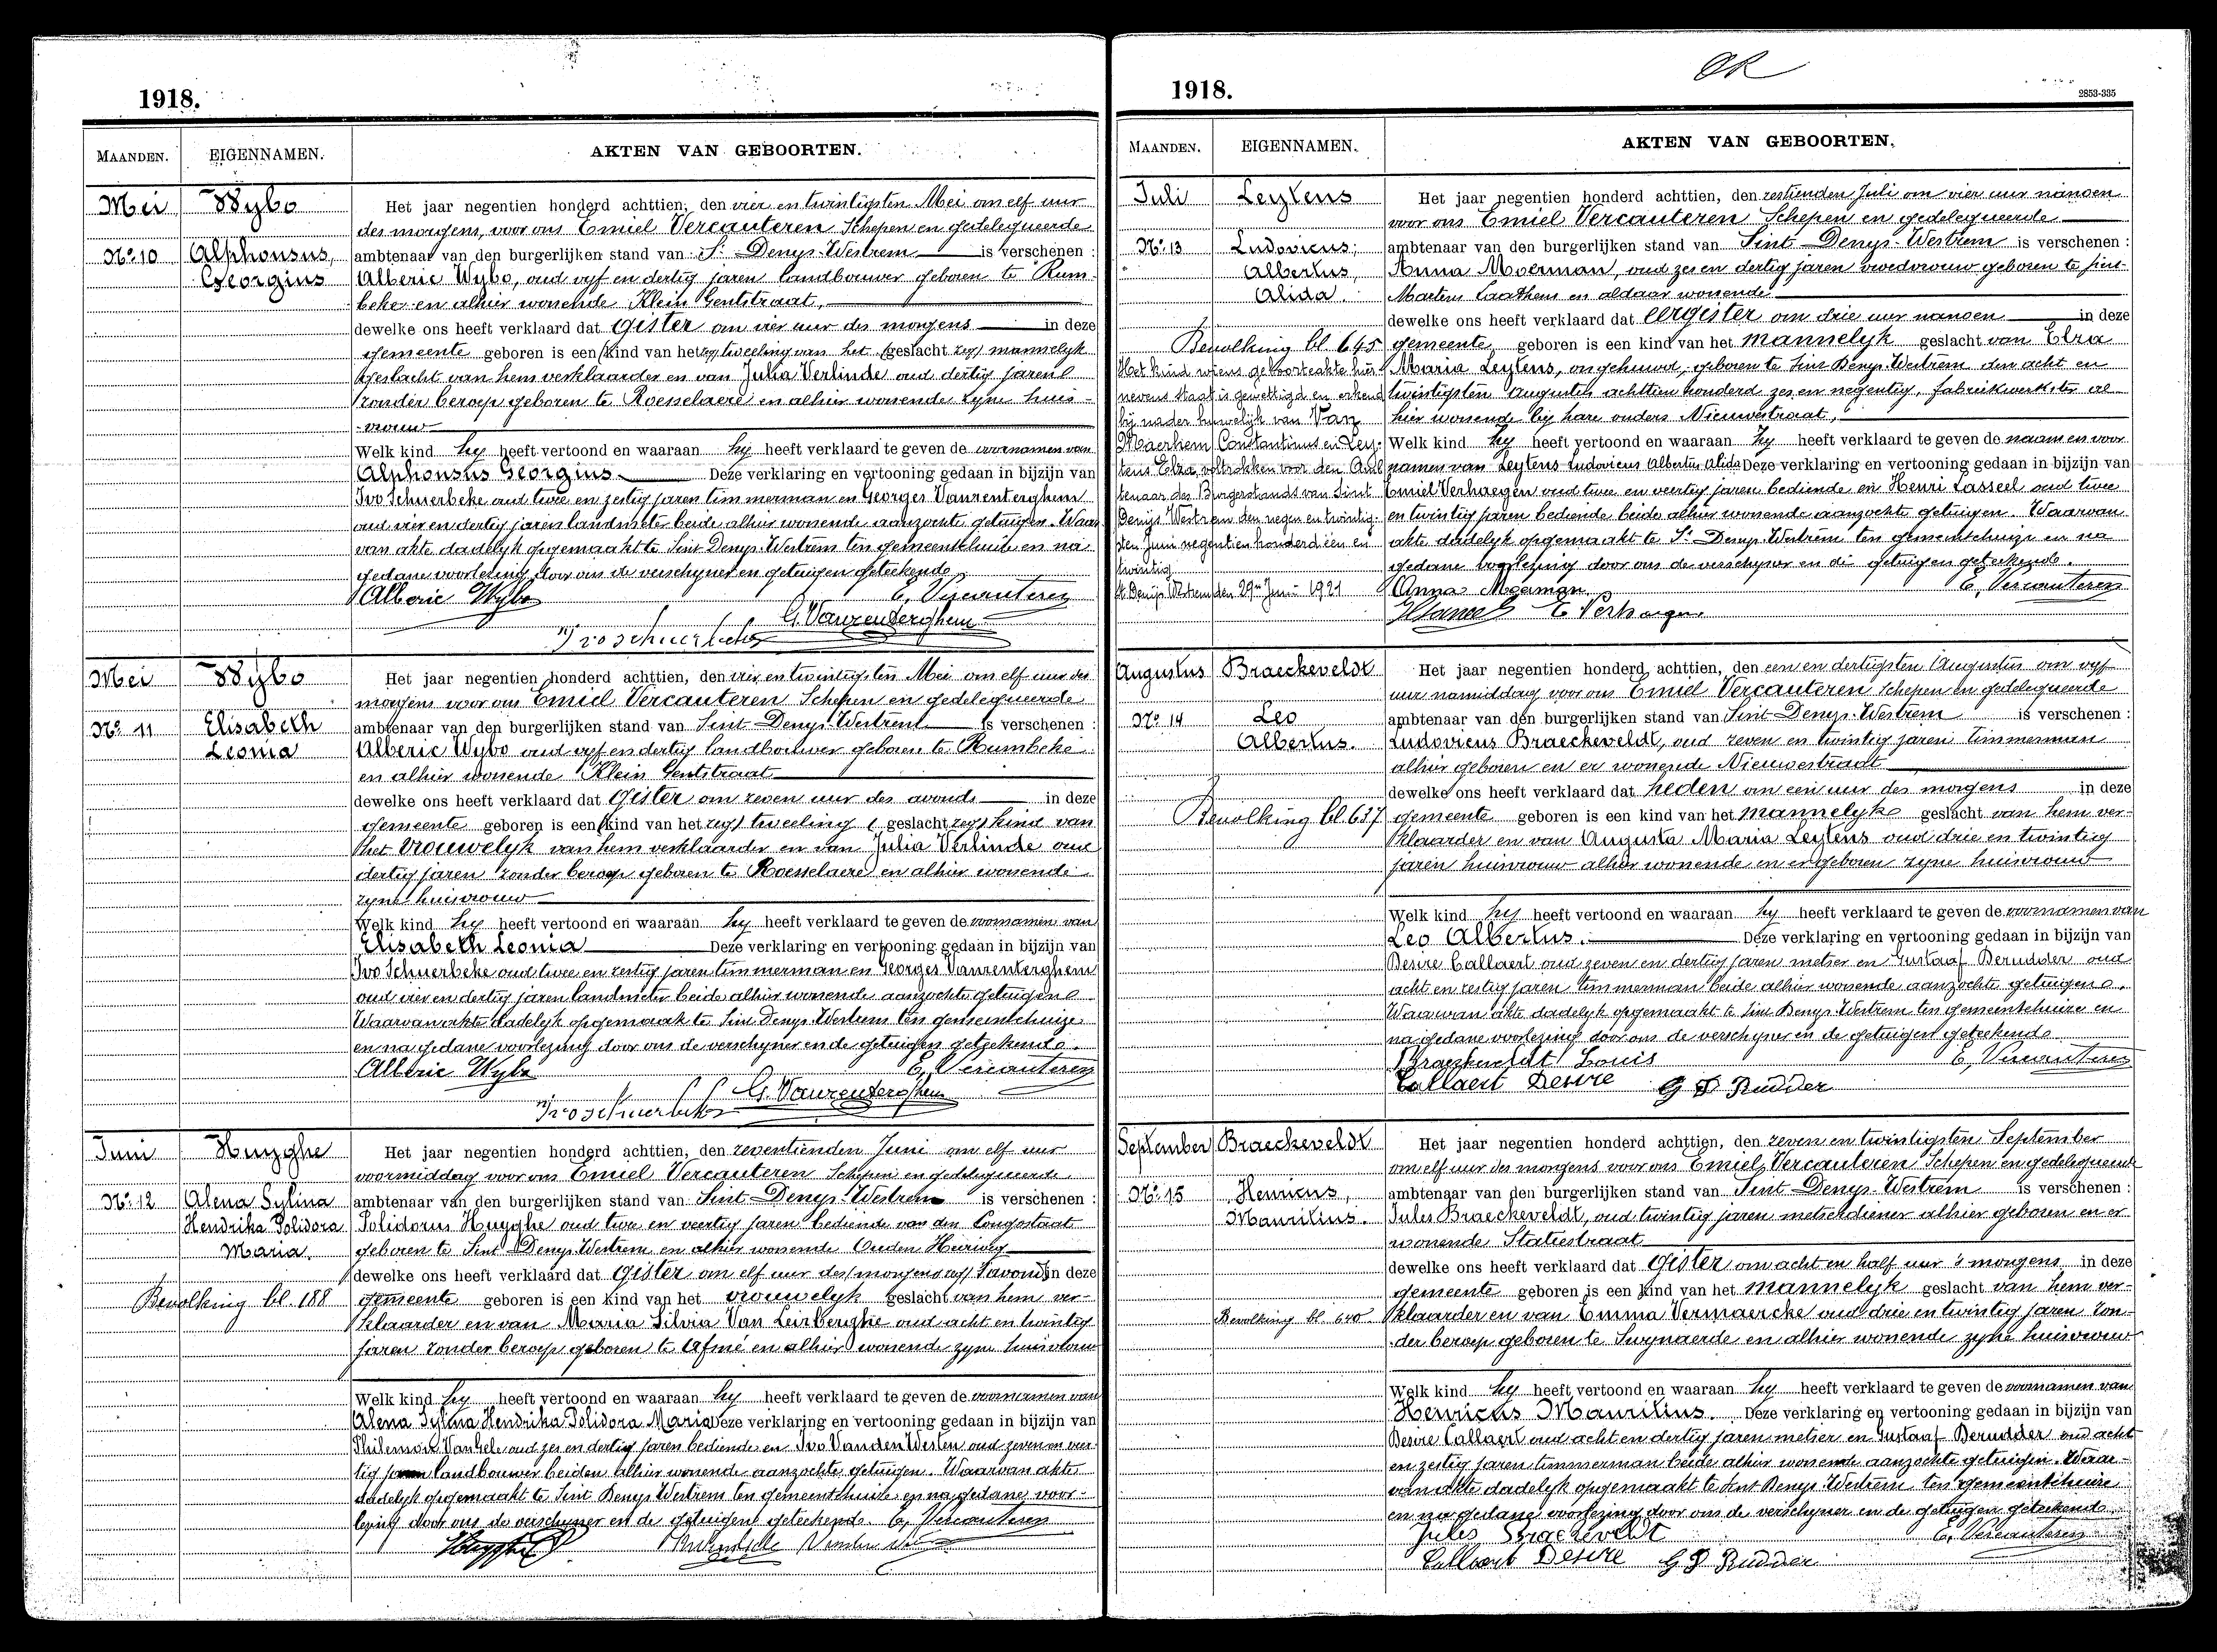 1918.
MAANDEN. EIGENNAMEN. AKTEN VAN GEBOORTEN.
Mei Wybo
No 10 Alphonsus,
Georgius
Het jaar negentien honderd achttien, den vier en twintigsten Mei om elf uur
des morgens, voor ons Emiel Vercauteren Schepen en gedelegueerde
ambtenaar van den burgerlijken stand van St Denys-Westrem is verschenen :
Alberic Wybo, oud vyf en dertig jaren landbouwer geboren te Rum-
beke en alhier wonende Klein Gentstraat,
dewelke ons heeft verklaard dat Gister om vier uur des morgens in deze
gemeente geboren is een (kind van het zeg) tweeling van het (geslacht zeg) mannelyk
geslacht van hem verklaarder en van Julia Verlinde oud dertig jaren
zonder beroep geboren te Roesselaere en alhier wonende zyne huis-
vrouw
Welk kind hy heeft vertoond en waaraan hy heeft verklaard te geven de voornamen van
Alphonsus Georgius Deze verklaring en vertooning gedaan in bijzijn van
Ivo Schuerbeke oud twee en zestig jaren timmerman en Georges Vanrenterghem
oud vier en dertig jaren landmeter beide alhier wonende aanzochte getuigen. Waar
van akte dadelyk opgemaakt te Sint Denys Westrem ten gemeentehuize en na
gedane voorlezing door ons de verschyner en getuigen geteekend
Alberic Wybo E. Vercauteren
G. Vanrenterghem
Ivo Schuerbeke
Mei Wybo
No 11 Elisabeth
Leonia
Het jaar negentien honderd achttien, den vier en twintigsten Mei om elf uur des
morgens voor ons Emiel Vercauteren Schepen en gedelegueerde
ambtenaar van den burgerlijken stand van Sint-Denys-Westrem is verschenen :
Alberic Wybo oud vyf en dertig landbouwer geboren te Rumbeke
en alhier wonende Klein Gentstraat
dewelke ons heeft verklaard dat Gister om zeven uur des avonds in deze
gemeente geboren is een (kind van het zeg) tweeling (geslacht zeg) kind van
het vrouwelyk van hem verklaarder en van Julia Verlinde oud
dertig jaren zonder beroep geboren te Roesselaere en alhier wonende
zyne huisvrouw
Welk kind hy heeft vertoond en waaraan hy heeft verklaard te geven de voornamen van
Elisabeth Leonia Deze verklaring en vertooning gedaan in bijzijn van
Ivo Schuerbeke oud twee en zestig jaren timmerman en Georges Vanrenterghem
oud vier en dertig jaren landmeter beide alhier wonende aanzochte getuigen
Waarvan akte dadelyk opgemaak te Sint Denys Westrem ten gemeentehuize
en na gedane voorlezing door ons de verschyner en de getuigen geteekend.
Alberic Wybo E. Vercauteren
G. Vanrenterghem
Ivo Schuerbeke
Juni Huyghe
No 12 Alena Sylina
Hendrika Polidora
Maria.
Bevolking bl. 188
Het jaar negentien honderd achttien, den zeventienden Juni om elf uur
voormiddag voor ons Emiel Vercauteren Schepen en gedelegueerde
ambtenaar van den burgerlijken stand van Sint-Denys-Westrem is verschenen :
Polidorus Huyghe oud twee en veertig jaren bediende van den
geboren te Sint Denys Westrem en alhier wonende Ouden Heirweg
dewelke ons heeft verklaard dat Gister om elf uur des (morgens zeg) s'avonds in deze
gemeente geboren is een kind van het vrouwelyk geslacht van hem ver-
klaarder en van Maria Silvia Van Leirberghe oud acht en twintig
jaren zonder beroep geboren te Afsné en alhier wonende zyne huisvrouw
Welk kind hy heeft vertoond en waaraan hy heeft verklaard te geven de voornamen van
Alena Sylina Hendrika Polidora Maria Deze verklaring en vertooning gedaan in bijzijn van
Philemon Vanhele oud zes en dertig jaren bediende en Ivo Vanden Westen oud zeven en veer-
tig jaren landbouwer beiden alhier wonende aanzochte getuigen. Waarvan akte
dadelyk opgemaakt te Sint Denys Westrem ten gemeentehuize en na gedane voor-
lezing door ons de verschyner en de getuigen geteekend. E. Vercauteren
Huyghe
OK
1918.
2853-335
MAANDEN. EIGENNAMEN. AKTEN VAN GEBOORTEN.
Juli Leytens
No 13 Ludovicus,
Albertus,
Alida.
Bevolking bl. 645
Het kind wiens geboorteakte hier
nevens staat is gewettigd en erkend
bij nader huwelijk van Van
Maerhem Constantinus en Ley-
tens Elza voltrokken voor den Amb
tenaar des Burgerstands van Sint
Denijs Westrem den negen en twintig-
sten Juni negentien honderd een en
twintig.
St Denijs Westrem den 29n Juni 1921
Het jaar negentien honderd achttien, den zestienden Juli om vier uur nanoen
voor ons Emiel Vercauteren Schepen en gedelegueerde
ambtenaar van den burgerlijken stand van Sint-Denys-Westrem is verschenen :
Anna Moerman, oud zes en dertig jaren vroedvrouw geboren te Sint-
Martens Laathem en aldaar wonende
dewelke ons heeft verklaard dat eergister om drie uur nanoen in deze
gemeente geboren is een kind van het mannelyk geslacht van Elza
Maria Leytens, ongehuwd, geboren te Sint Denys-Westrem den acht en
twintigsten Augustus achttien honderd zes en negentig, fabriekwerkster al-
hier wonende by hare ouders Nieuwstraat,
Welk kind hy heeft vertoond en waaraan hy heeft verklaard te geven de naam en voor-
namen van Leytens Ludovicus Albertus Alida Deze verklaring en vertooning gedaan in bijzijn van
Emiel Verhaegen oud twee en veertig jaren bediende en Henri Lasseel oud twee
en twintig jaren bediende beide alhier wonende aanzochte getuigen. Waarvan
akte dadelyk opgemaakt te St Denys Westrem ten gemeentehuize en na
gedane voorlezing door ons de verschyner en de getuigen geteekend.
Anna Moerman E. Vercauteren
E Verhaegen
Augustus Braeckeveldt
No 14 Leo
Albertus.
Bevolking bl. 637
Het jaar negentien honderd achttien, den een en dertigsten Augustus om vyf
uur namiddag voor ons Emiel Vercauteren Schepen en gedelegueerde
ambtenaar van den burgerlijken stand van Sint-Denys-Westrem is verschenen :
Ludovicus Braeckeveldt, oud zeven en twintig jaren timmerman
alhier geboren en er wonende Nieuwestraat
dewelke ons heeft verklaard dat heden om een uur des morgens in deze
gemeente geboren is een kind van het mannelyke geslacht van hem ver-
klaarder en van Augusta Maria Leytens oud drie en twintig
jaren huisvrouw alhier wonende en er geboren zyne huisvrouw
Welk kind hy heeft vertoond en waaraan hy heeft verklaard te geven de voornamen van
Leo Albertus. Deze verklaring en vertooning gedaan in bijzijn van
Desire Callaert oud zeven en dertig jaren metser en Gustaaf Derudder oud
acht en zestig jaren timmerman beide alhier wonende aanzochte getuigen.
Waarvan akte dadelyk opgemaakt te Sint Denys-Westrem ten gemeentehuize en
na gedane voorlezing door ons de verschyner en de getuigen geteekend
Braeckeveldt Louis E. Vercauteren
Callaert Desire G D Rudder
September Braeckeveldt
No 15 Henricus,
Mauritius.
Bevolking bl 640
Het jaar negentien honderd achttien, den zeven en twintigsten September
om elf uur des morgens voor ons Emiel Vercauteren Schepen en gedelegueerde
ambtenaar van den burgerlijken stand van Sint-Denys-Westrem is verschenen :
Jules Braeckeveldt, oud twintig jaren metserdiener alhier geboren en er
wonende Statiestraat
dewelke ons heeft verklaard dat Gister om acht en half uur 's morgens in deze
gemeente geboren is een kind van het mannelyk geslacht van hem ver-
klaarder en van Emma Vermaercke oud drie en twintig jaren zon-
der beroep geboren te Swynaerde en alhier wonende zyne huisvrouw
Welk kind hy heeft vertoond en waaraan hy heeft verklaard te geven de voornamen van
Henricus Mauritius. Deze verklaring en vertooning gedaan in bijzijn van
Desire Callaert oud acht en dertig jaren metser en Gustaaf Derudder oud acht
en zestig jaren timmerman beide alhier wonende aanzochte getuigen. Waar-
van akte dadelyk opgemaakt te Sint Denys-Westrem ten gemeentehuize
en na gedane voorlezing door ons de verschyner en de getuigen geteekend
Jules Braeckeveldt E. Vercauteren
Callaert Desire G D Rudder